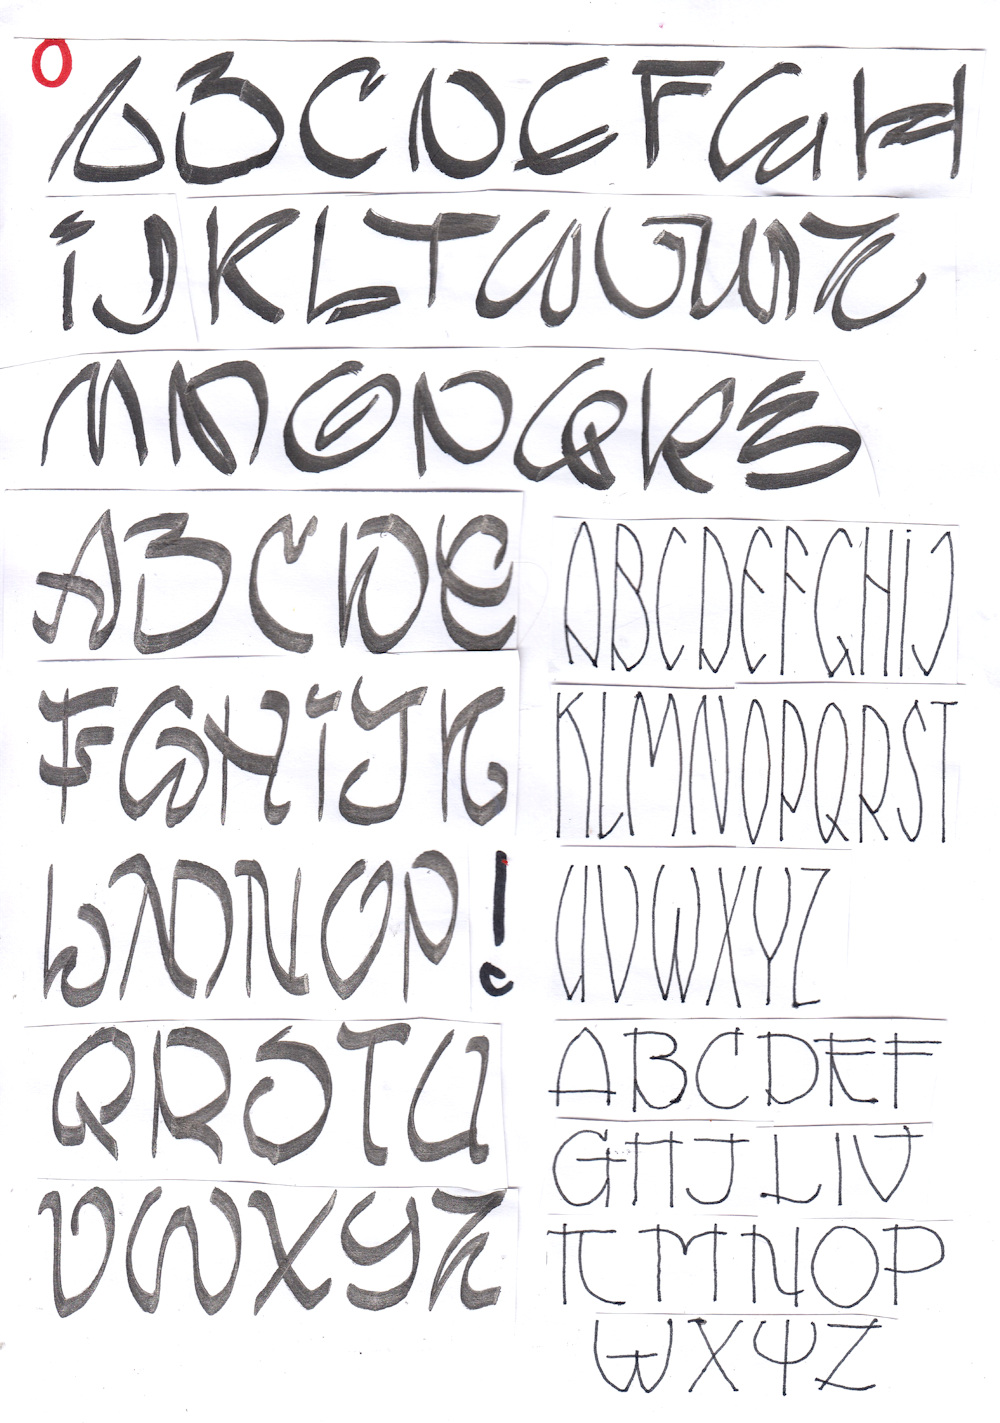 O
ABCDEFGH
iJKLTUVWZ
MNOPQRS
ABCDE
FGHiJK
LMNOP!
QRSTU
VWXYZ
ABCDEFGHiJ
KLMNOPQRST
UVWXYZ
ABCDEF
GHJLIV
KMNOP
WXYZ